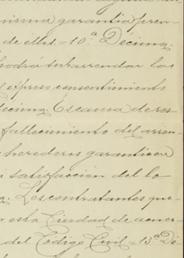 misma garantía pren
de ellas - 10ª Decima.
podra subarrendar las
l espreso consentimiento
ecima. En caso de
fallecimiento del arren
herederos garanticen
satisfaccion del lo
Los contratantes que
esta Ciudad de
del Codigo Civil - 13ª Di